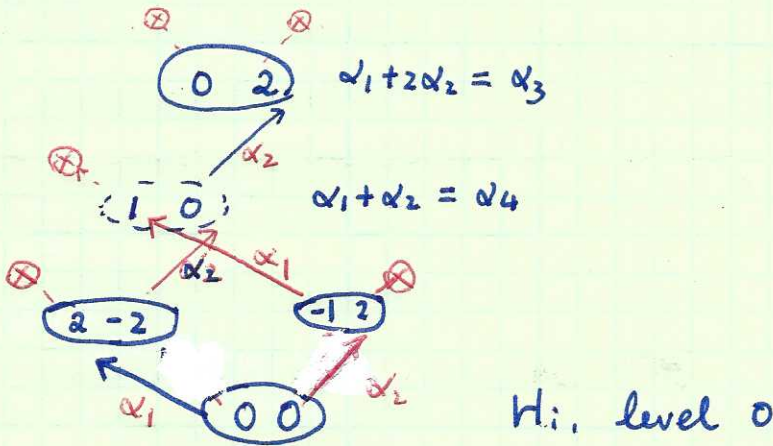 ⊗ ⊗
0 2 α₁+2α₂ = α₃
α₂
⊗
1 0 α₁+α₂ = α₄
α₂ α₁
⊗ ⊗
2 -2 -1 2
α₁ α₂
0 0 Hi, level 0